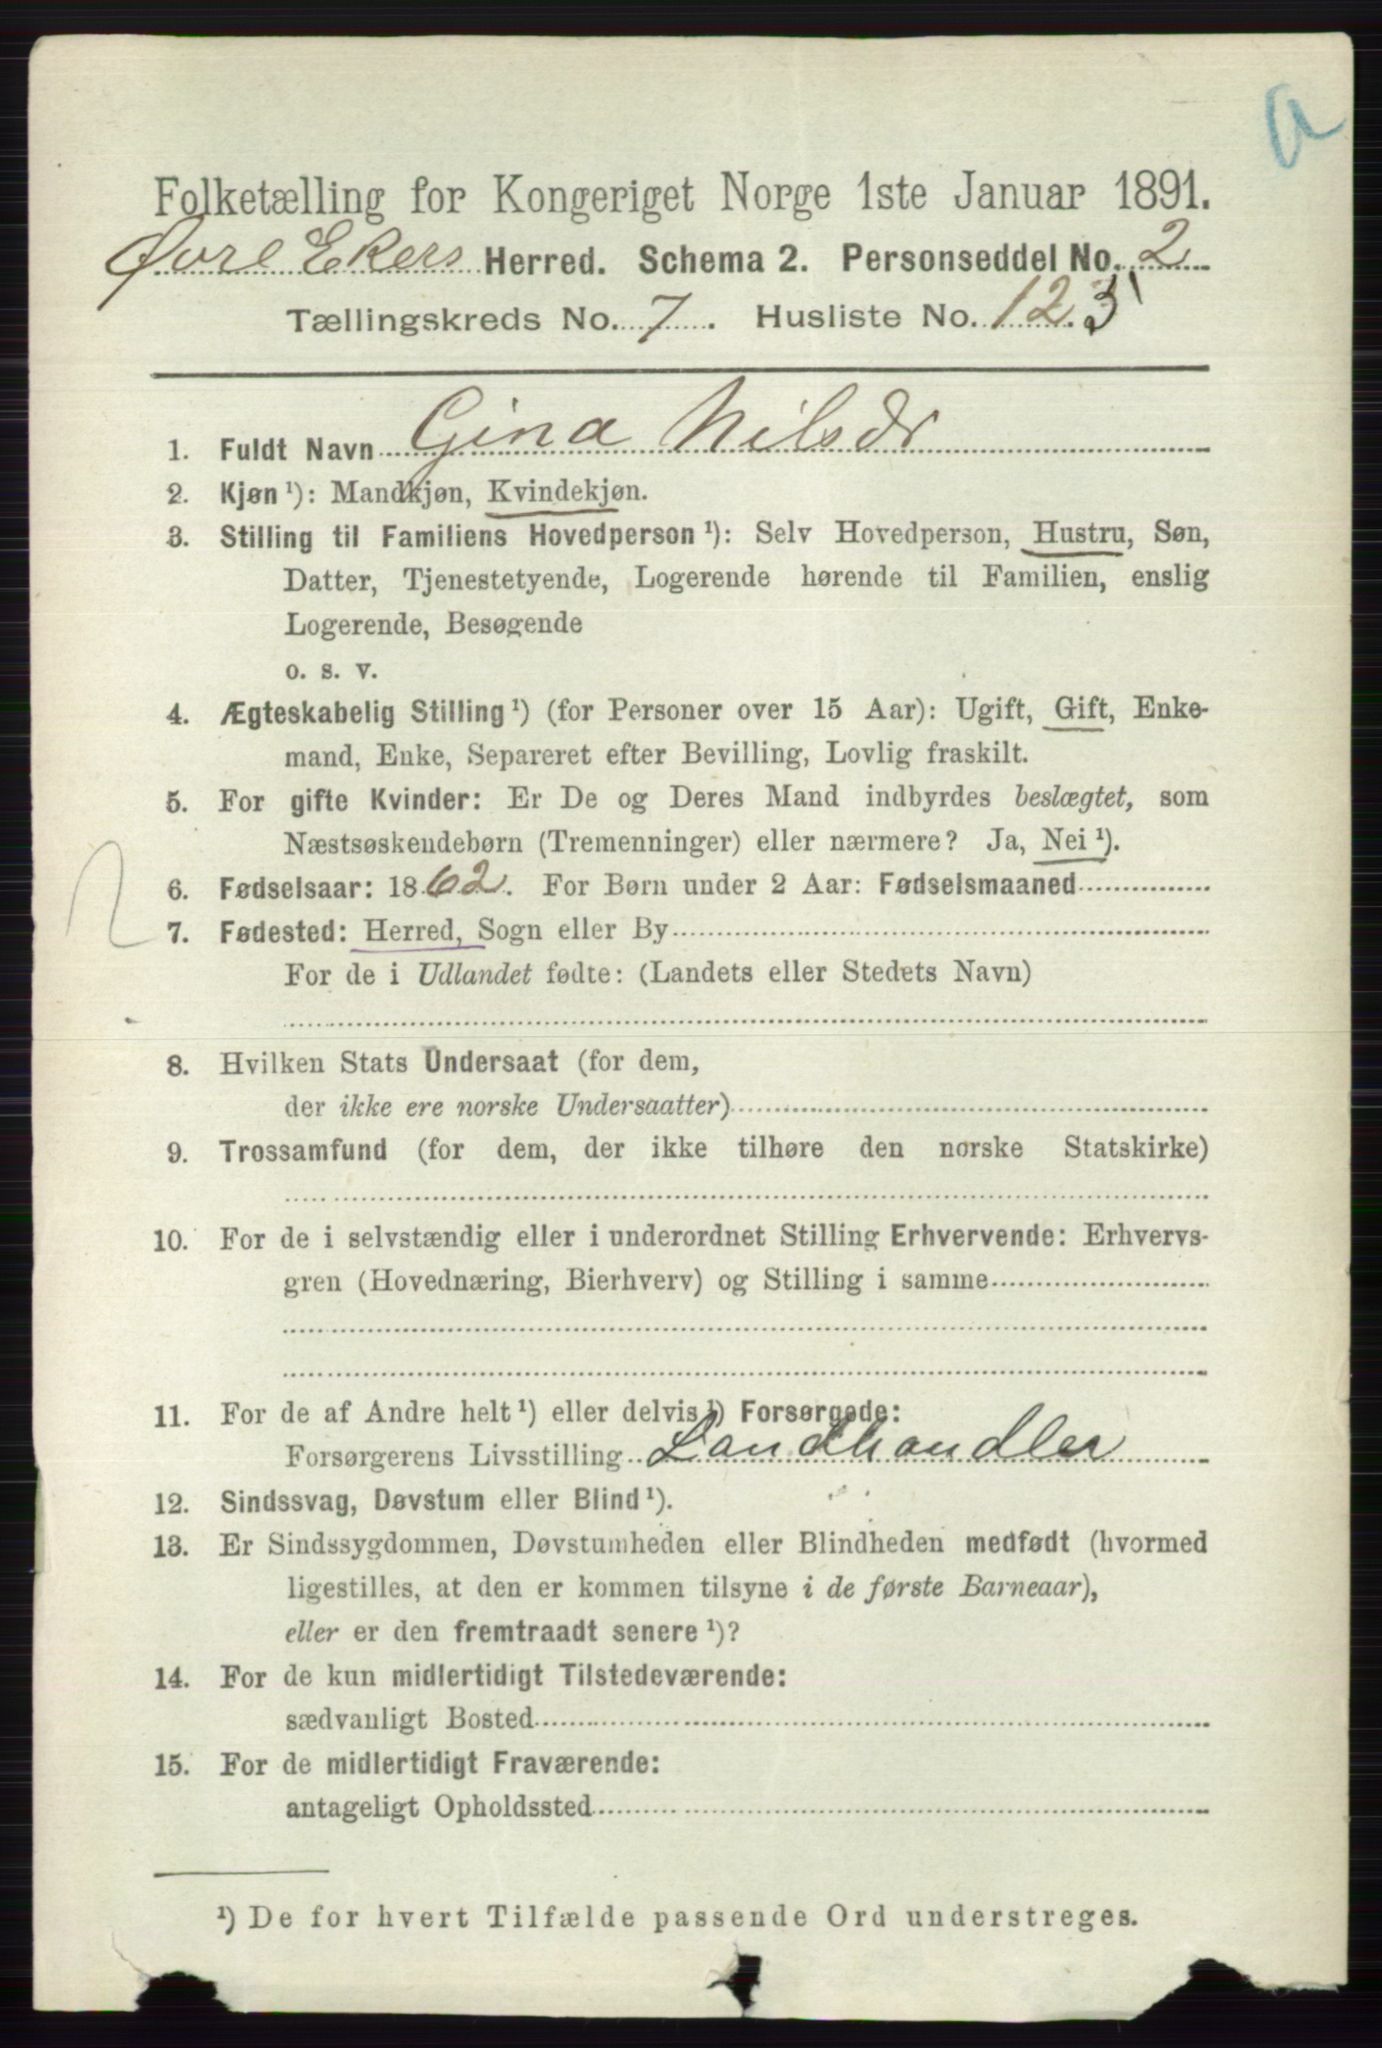 a
Folketælling for Kongeriget Norge 1ste Januar 1891.
Øvre Ekers Herred. Schema 2. Personseddel No. 2
Tællingskreds No. 7. Husliste No. 123
1. Fuldt Navn Gina Nilsdr
2. Kjøn ¹): Mandkjøn, Kvindekjøn.
3. Stilling til Familiens Hovedperson ¹): Selv Hovedperson, Hustru, Søn,
Datter, Tjenestetyende, Logerende hørende til Familien, enslig
Logerende, Besøgende
o. s. v.
4. Ægteskabelig Stilling ¹) (for Personer over 15 Aar): Ugift, Gift, Enke-
mand, Enke, Separeret efter Bevilling, Lovlig fraskilt.
5. For gifte Kvinder: Er De og Deres Mand indbyrdes beslægtet, som
Næstsøskendebørn (Tremenninger) eller nærmere? Ja, Nei ¹).
6. Fødselsaar: 1862. For Børn under 2 Aar: Fødselsmaaned
2
7. Fødested: Herred, Sogn eller By
For de i Udlandet fødte: (Landets eller Stedets Navn)
8. Hvilken Stats Undersaat (for dem,
der ikke ere norske Undersaatter)
9. Trossamfund (for dem, der ikke tilhøre den norske Statskirke)
10. For de i selvstændig eller i underordnet Stilling Erhvervende: Erhvervs-
gren (Hovednæring, Bierhverv) og Stilling i samme
11. For de af Andre helt ¹) eller delvis ¹) Forsørgede:
Forsørgerens Livsstilling Landhandler
12. Sindssvag, Døvstum eller Blind ¹).
13. Er Sindssygdommen, Døvstumheden eller Blindheden medfødt (hvormed
ligestilles, at den er kommen tilsyne i de første Barneaar),
eller er den fremtraadt senere ¹)?
14. For de kun midlertidigt Tilstedeværende:
sædvanligt Bosted
15. For de midlertidigt Fraværende:
antageligt Opholdssted
¹) De for hvert Tilfælde passende Ord understreges.